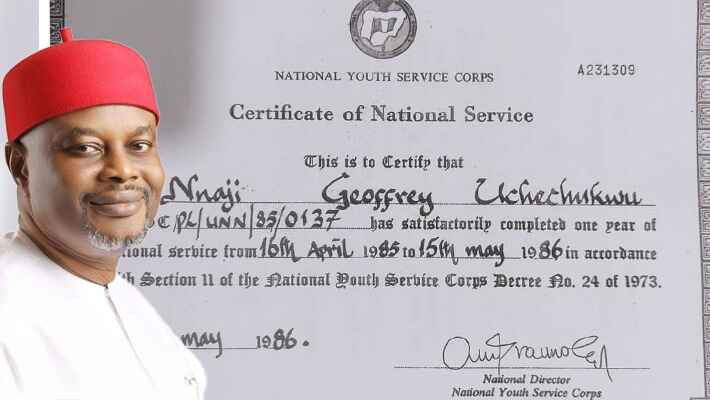 NATIONAL YOUTH SERVICE CORPS
A231309
Certificate of National Service
This is to Certify that
Nnaji Geoffrey Uchechukwu
C/PL/UNN/85/0137 has satisfactorily completed one year of
tional service from 16th April 1985 to 15th may 1986 in accordance
th Section 11 of the National Youth Service Corps Decree No. 24 of 1973.
may 1986.
National Director
National Youth Service Corps